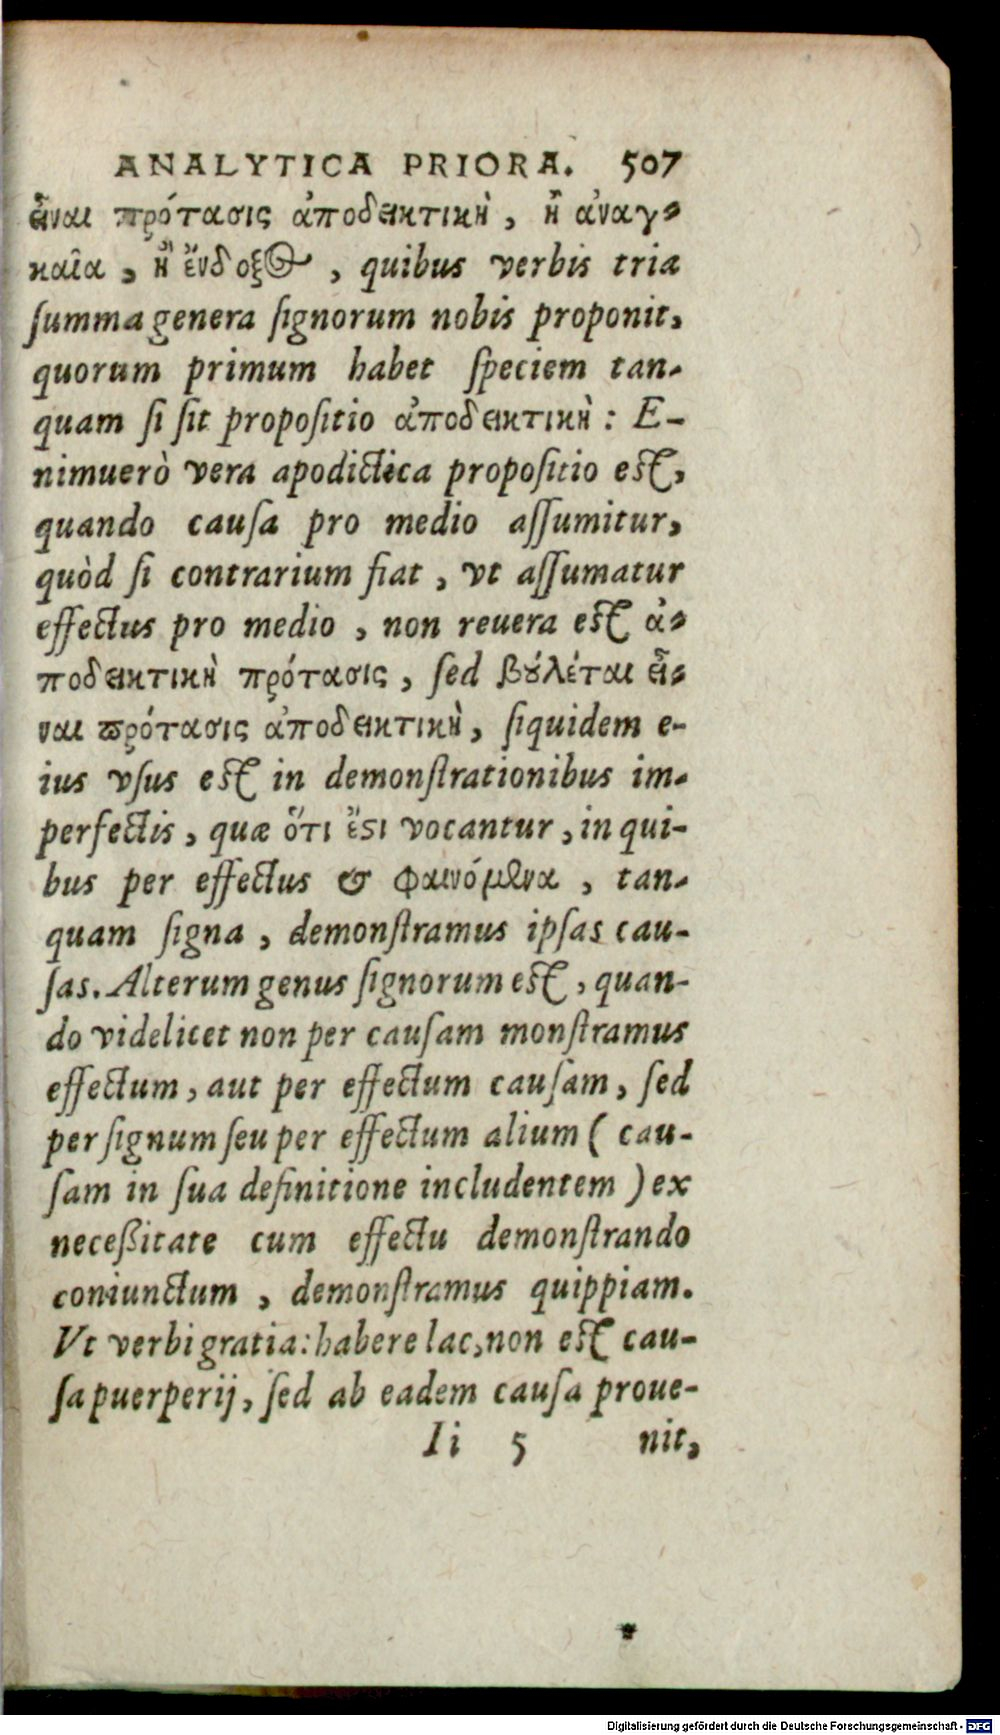 ANALYTICA PRIORA. 507
εἶναι πρότασις ἀποδεικτικὴ, ἢ ἀναγ-
καῖα, ἢ ἔνδοξος, quibus verbis tria
ſumma genera ſignorum nobis proponit,
quorum primum habet ſpeciem tan-
quam ſi ſit propoſitio ἀποδεικτικὴ: E-
nimuerò vera apodictica propoſitio eſt,
quando cauſa pro medio aſſumitur,
quòd ſi contrarium fiat, vt aſſumatur
effectus pro medio, non reuera eſt ἀ-
ποδεικτικὴ πρότασις, ſed βȣλέται εἶ-
ναι ϖρότασις ἀποδεικτικὴ, ſiquidem e-
ius vſus eſt in demonſtrationibus im-
perfectis, quæ ὅτι ἔϛι vocantur, in qui-
bus per effectus & φαινόμενα, tan-
quam ſigna, demonſtramus ipſas cau-
ſas. Alterum genus ſignorum eſt, quan-
do videlicet non per cauſam monſtramus
effectum, aut per effectum cauſam, ſed
per ſignum ſeu per effectum alium (cau-
ſam in ſua definitione includentem) ex
neceßitate cum effectu demonſtrando
coniunctum, demonſtramus quippiam.
Vt verbi gratia: habere lac, non eſt cau-
ſa puerperij, ſed ab eadem cauſa proue-
Ii 5 nit,
Digitalisierung gefördert durch die Deutsche Forschungsgemeinschaft - DFG